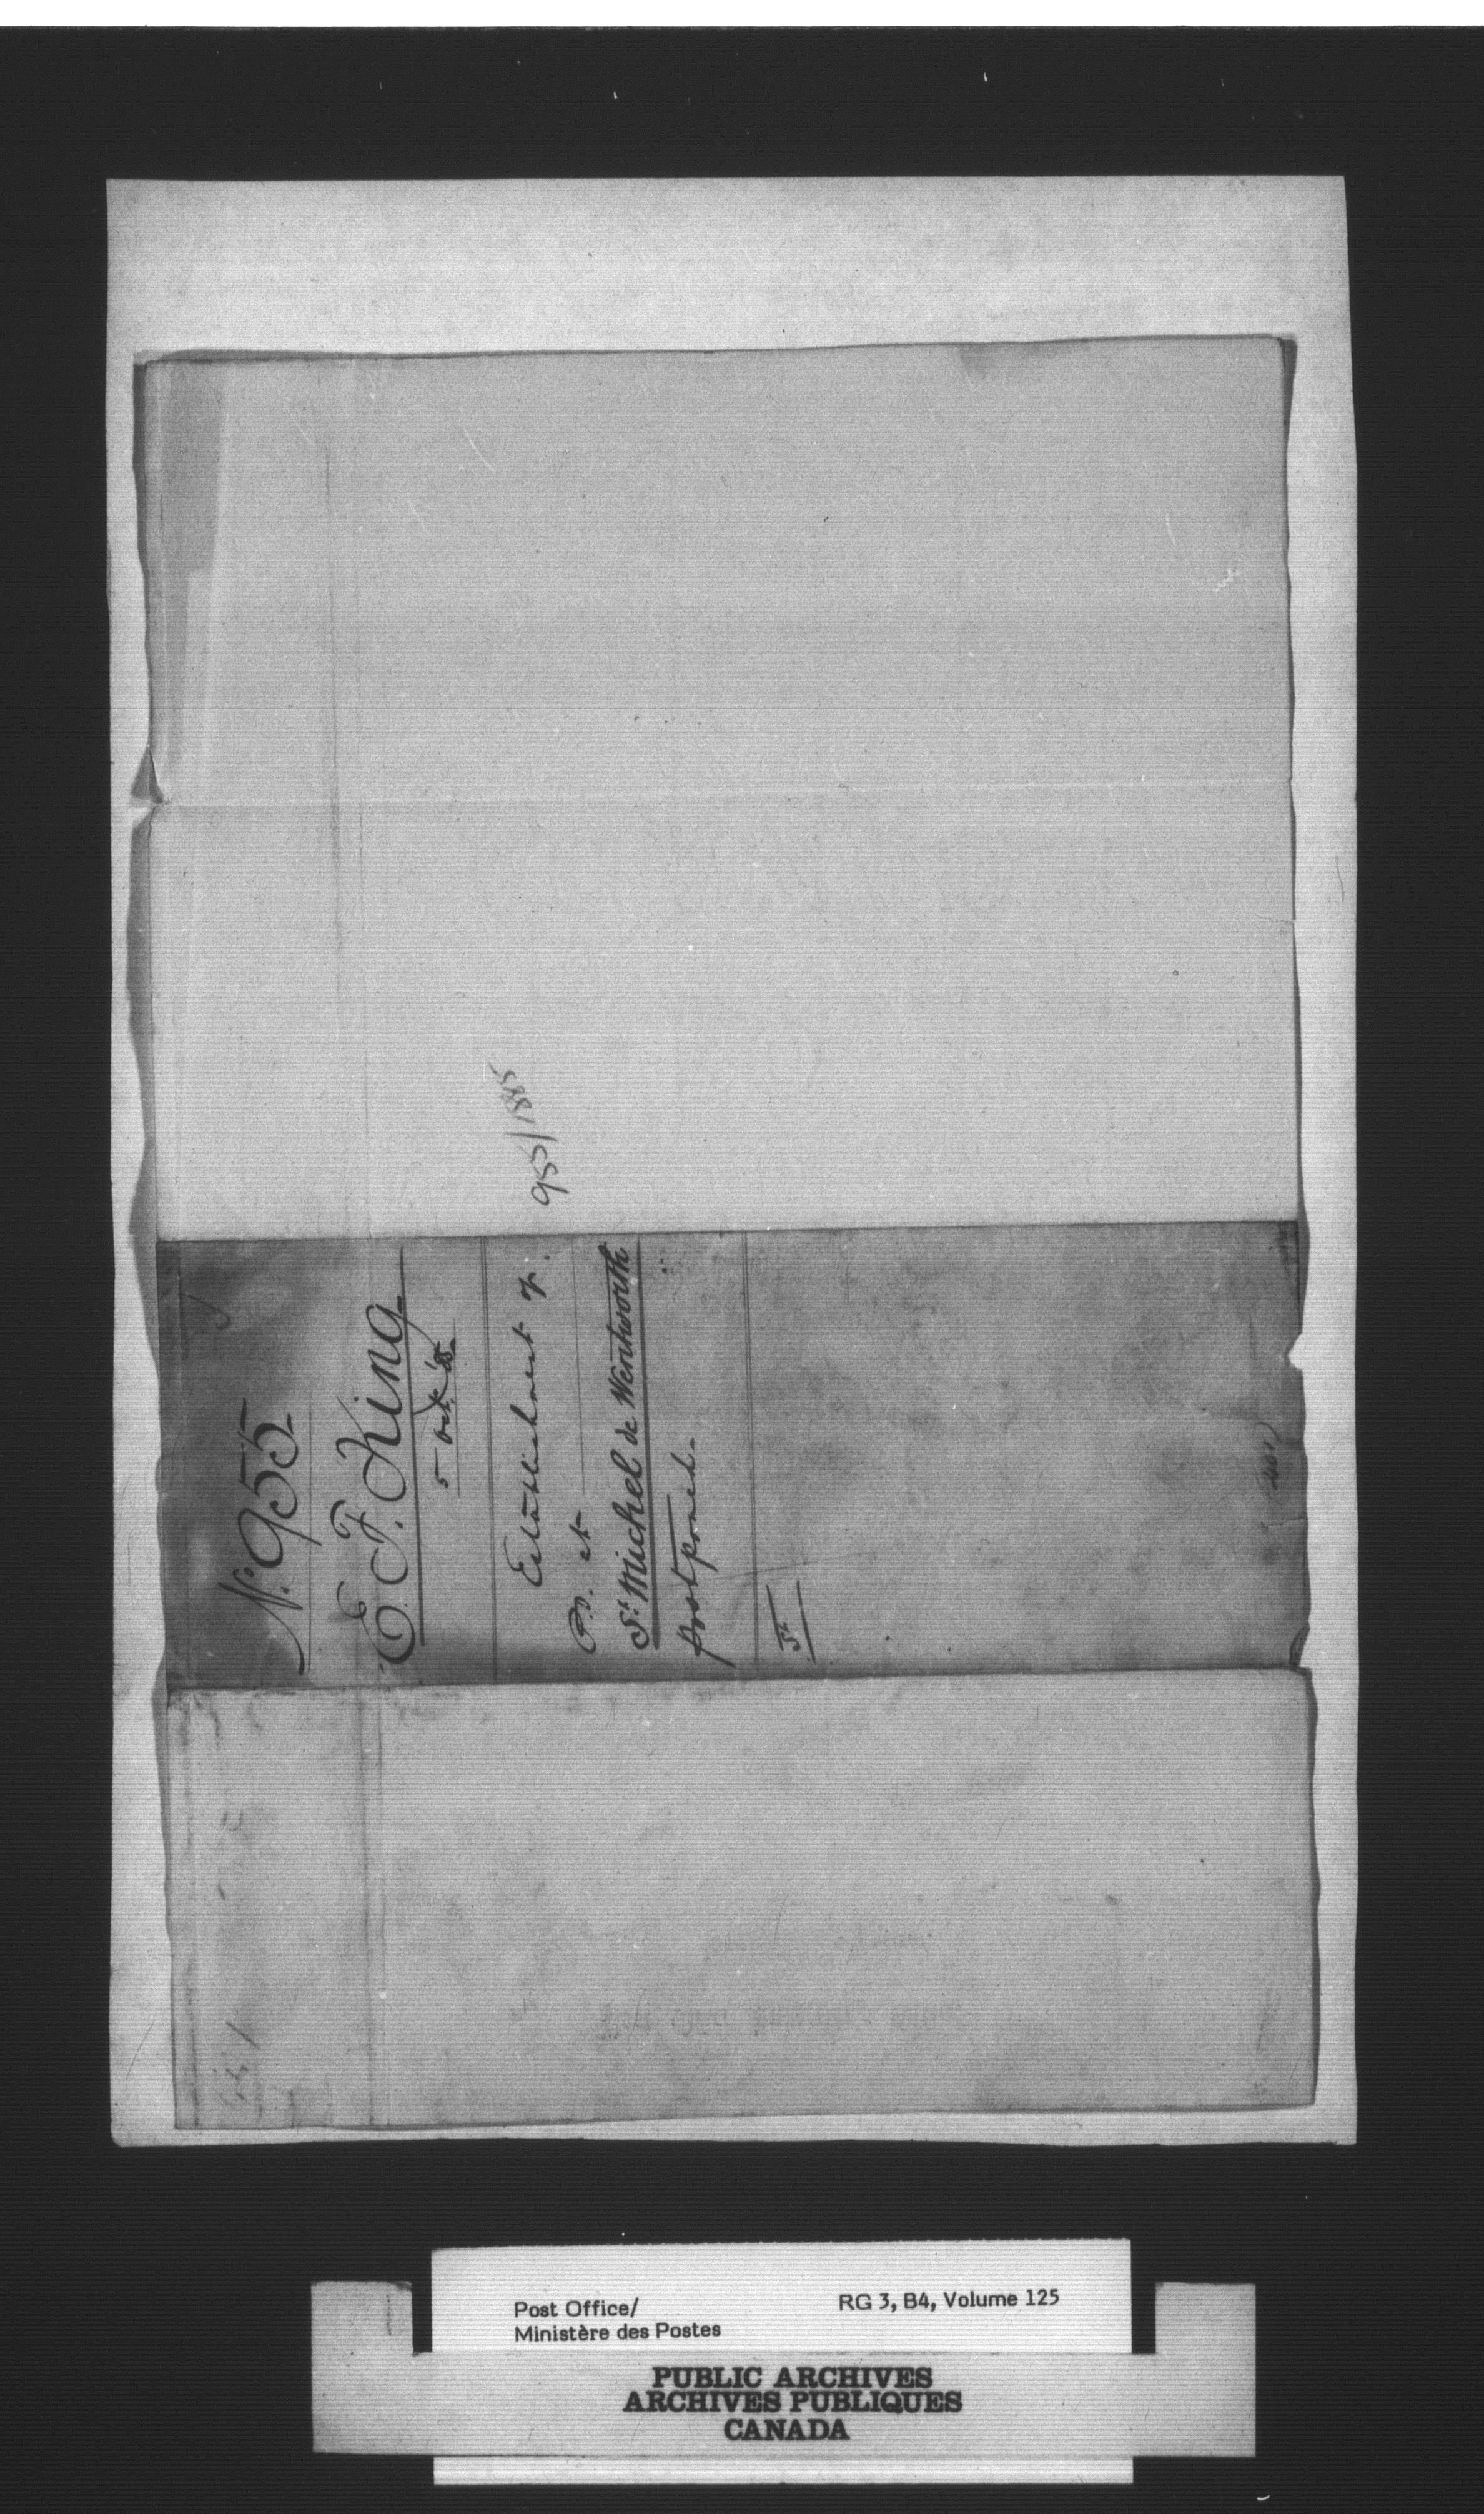 No. 955
E. F. King
5 Oct. '85
Establishment of
P.O. at
St. Michel de Wentworth
postponed.
St
955/1885
Post Office/
Ministère des Postes
RG 3, B4, Volume 125
PUBLIC ARCHIVES
ARCHIVES PUBLIQUES
CANADA